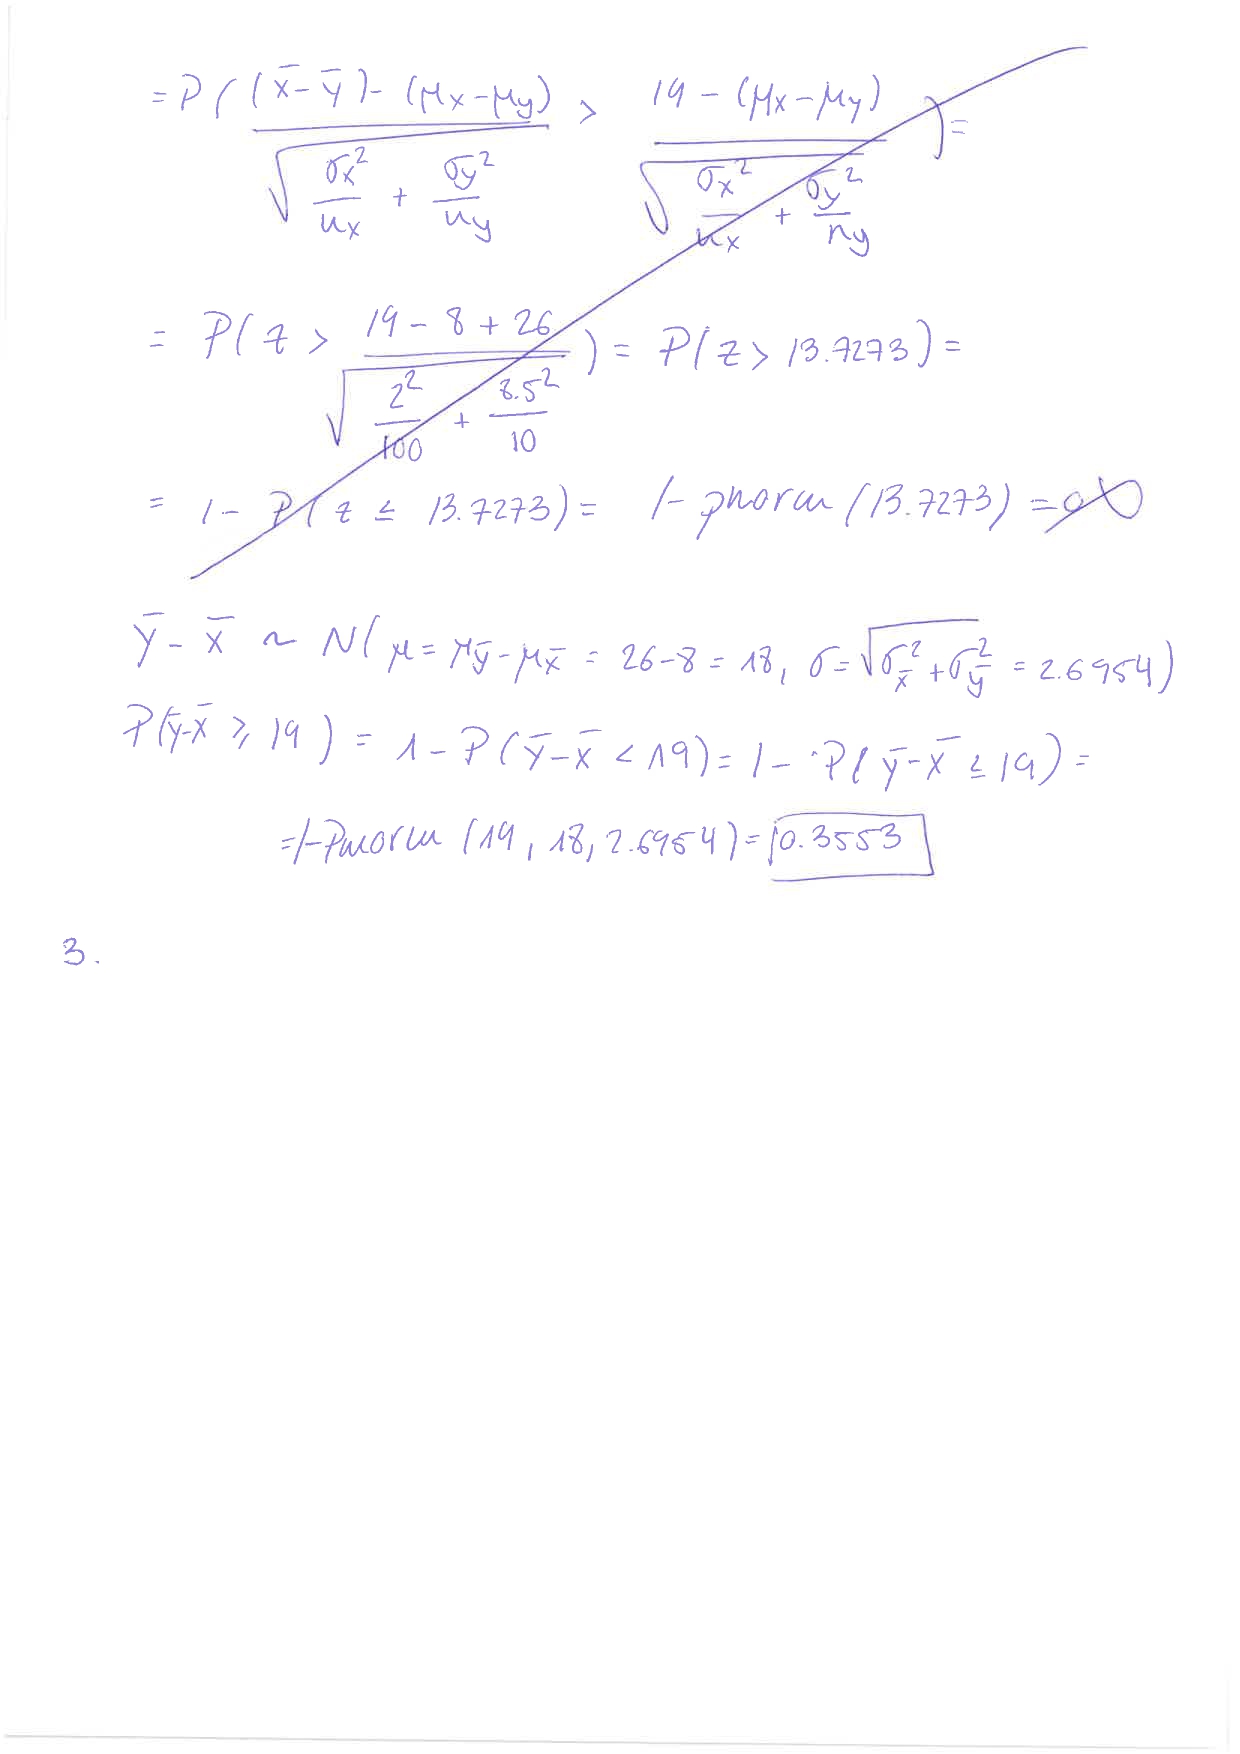 = P( ((x̄ - ȳ) - (μx - μy)) / √(σx²/nx + σy²/ny) > (19 - (μx - μy)) / √(σx²/nx + σy²/ny) ) =
= P( z > (19 - 8 + 26) / √(2²/100 + 8.5²/10) ) = P( z > 13.7273) =
= 1 - P( z ≤ 13.7273) = 1 - pnorm (13.7273) =
ȳ - x̄ ~ N( μ = μȳ - μx̄ = 26-8 = 18, σ = √(σx̄² + σȳ²) = 2.6954)
P(ȳ-x̄ ≥ 19) = 1 - P(ȳ-x̄ < 19) = 1 - P(ȳ-x̄ ≤ 19) =
= 1-Pnorm (19, 18, 2.6954) = 0.3553
3.